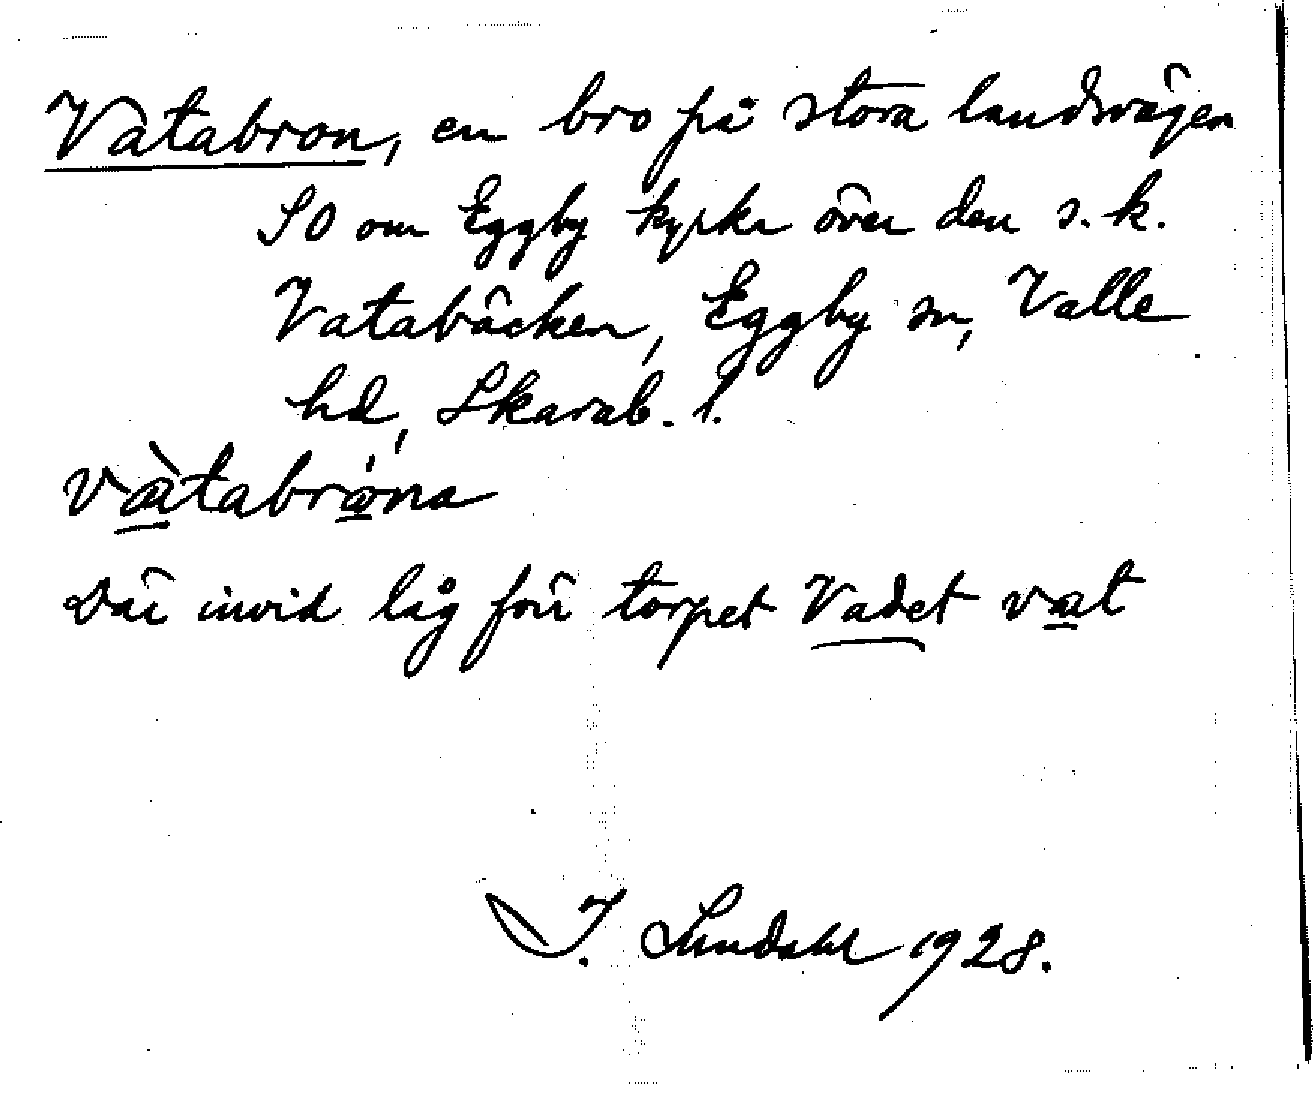 Vatabron, en bro på stora landsvägen
SO om Eggby kyrka över den s.k.
Vatabäcken, Eggby sn, Valle
hd, Skarab. l.
væ̀tabrǿna
Där invid låg förr torpet Vadet væt
I. Lundahl 1928.